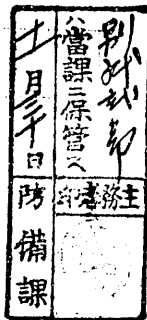 別紙
ハ當課ニ保管ス
十一月三十日
主務者印
防備課